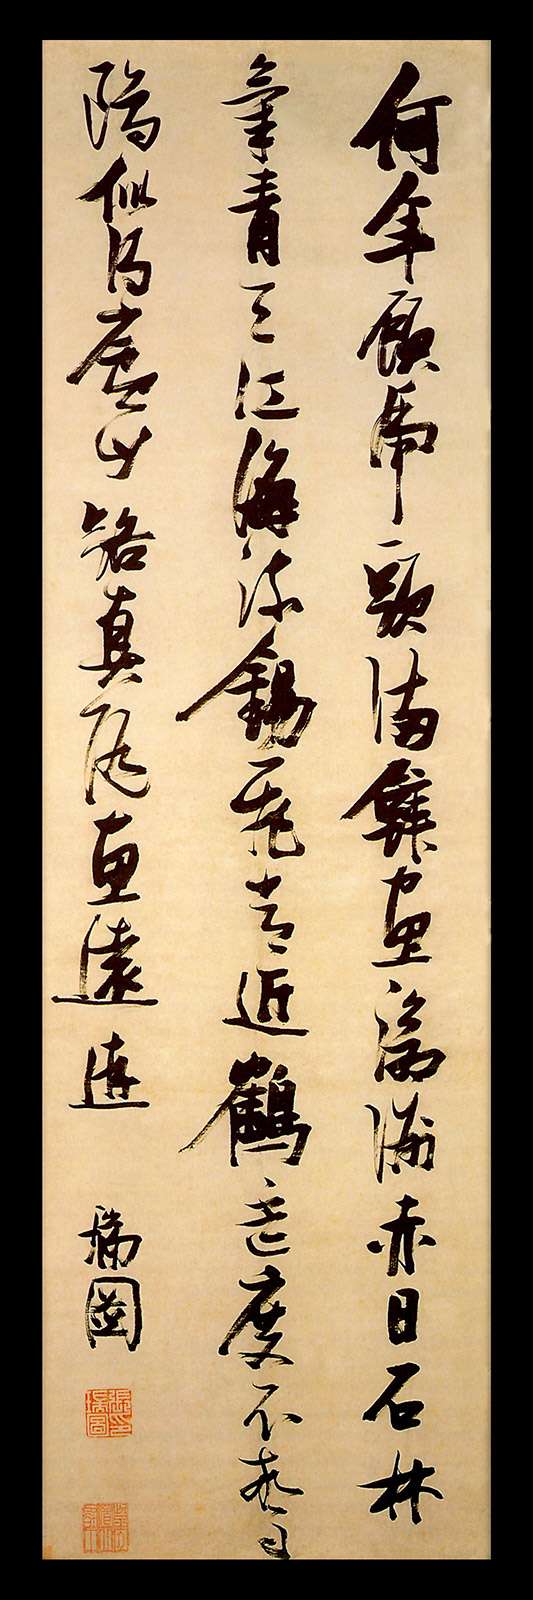 何年顧虎頭滿壁畫滄洲赤日石林
氣青天江海流錫飛常近鶴杯度不驚
鷗似得廬山路真隨惠遠遊
瑞圖
張瑞圖印